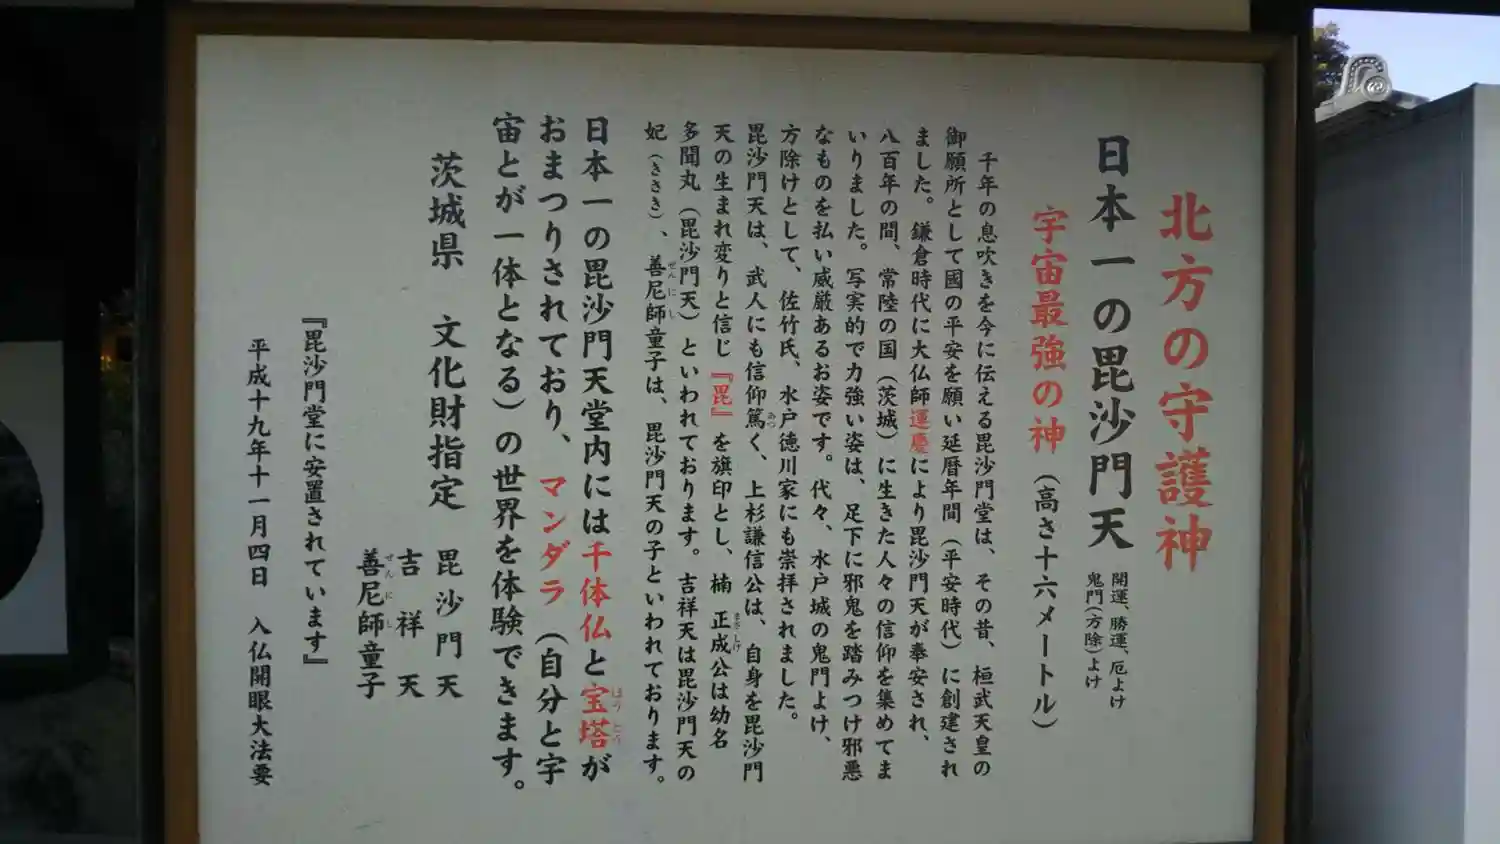 北方の守護神
日本一の毘沙門天
開運、勝運、厄よけ
鬼門(方除)よけ
宇宙最強の神(高さ十六メートル)
千年の息吹きを今に伝える毘沙門堂は、その昔、桓武天皇の
御願所として國の平安を願い延暦年間(平安時代)に創建され
ました。鎌倉時代に大仏師運慶により毘沙門天が奉安され、
八百年の間、常陸の国(茨城)に生きた人々の信仰を集めてま
いりました。写実的で力強い姿は、足下に邪鬼を踏みつけ邪悪
なものを払い威厳あるお姿です。代々、水戸城の鬼門よけ、
方除けとして、佐竹氏、水戸徳川家にも崇拝されました。
毘沙門天は、武人にも信仰篤く、上杉謙信公は、自身を毘沙門
あつ
天の生まれ変りと信じ『毘』を旗印とし、楠 正成公は幼名
まさしげ
多聞丸(毘沙門天)といわれております。吉祥天は毘沙門天の
妃(きさき)、善尼師童子は、毘沙門天の子といわれております。
ぜんにし
日本一の毘沙門天堂内には千体仏と宝塔が
ほうとう
おまつりされており、マンダラ(自分と宇
宙とが一体となる)の世界を体験できます。
茨城県 文化財指定
毘沙門天
吉祥天
善尼師童子
ぜんにし
『毘沙門堂に安置されています』
平成十九年十一月四日 入仏開眼大法要